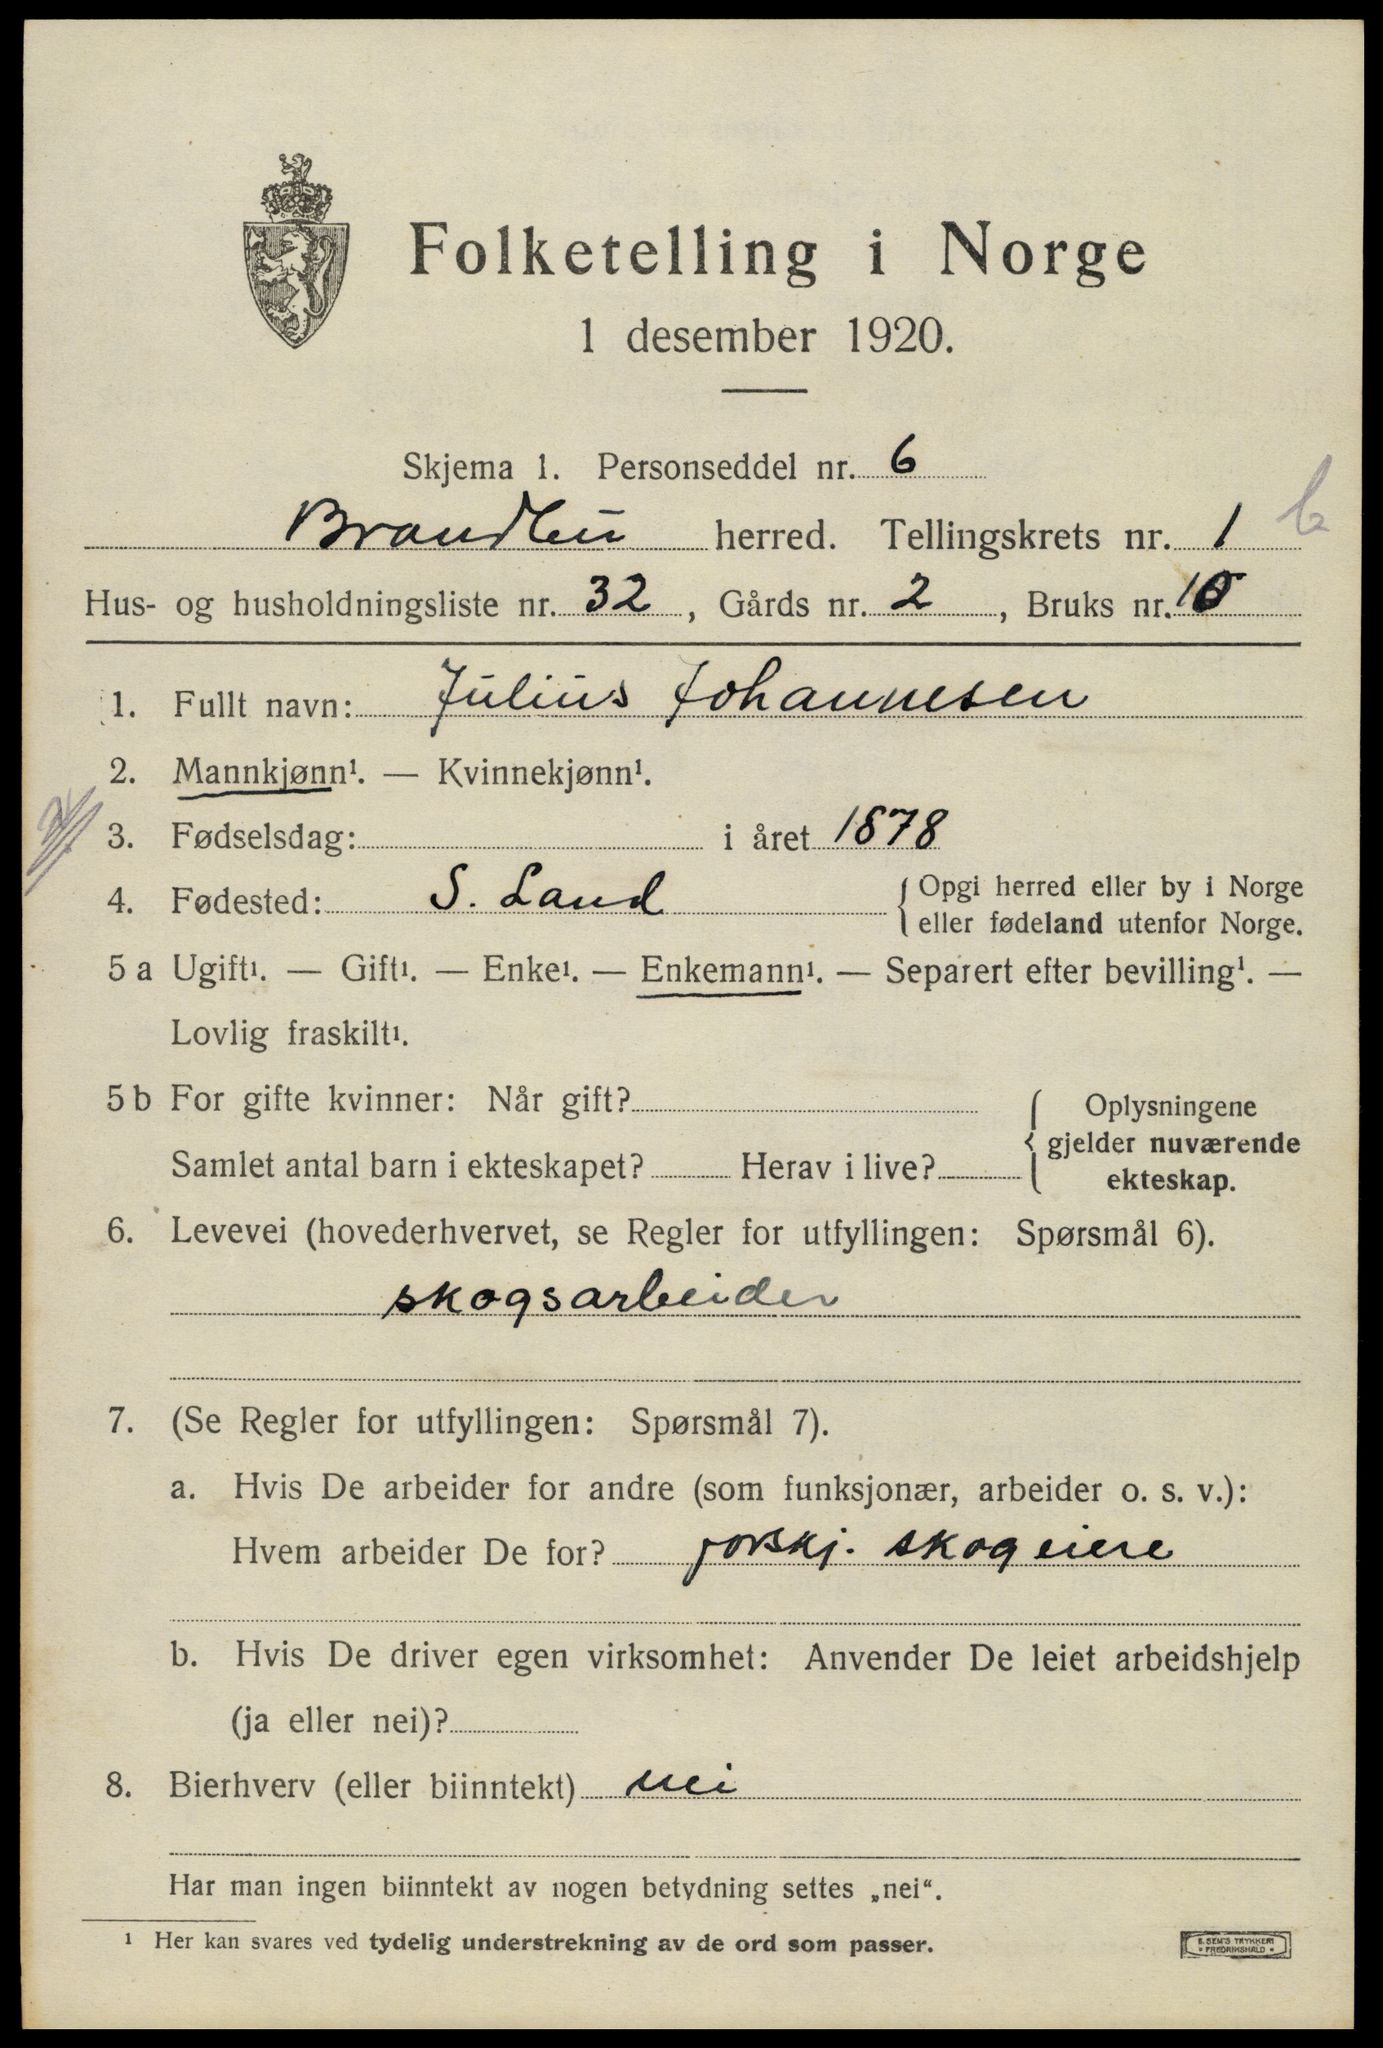 Folketelling i Norge
1 desember 1920.
Skjema 1. Personseddel nr. 6
Brandbu herred. Tellingskrets nr. 1 b
Hus- og husholdningsliste nr. 32, Gårds nr. 2, Bruks nr. 10
1. Fullt navn: Julius Johannesen
2. Mannkjønn¹. — Kvinnekjønn¹.
3. Fødselsdag: i året 1878
4. Fødested: S. Land { Opgi herred eller by i Norge
eller fødeland utenfor Norge.
5 a Ugift¹. — Gift¹. — Enke¹. — Enkemann¹. — Separert efter bevilling¹. —
Lovlig fraskilt¹.
5 b For gifte kvinner: Når gift? { Oplysningene
gjelder nuværende
Samlet antal barn i ekteskapet? Herav i live? ekteskap.
6. Levevei (hovederhvervet, se Regler for utfyllingen: Spørsmål 6).
skogsarbeider
7. (Se Regler for utfyllingen: Spørsmål 7).
a. Hvis De arbeider for andre (som funksjonær, arbeider o. s. v.):
Hvem arbeider De for? forskj. skogeiere
b. Hvis De driver egen virksomhet: Anvender De leiet arbeidshjelp
(ja eller nei)?
8. Bierhverv (eller biinntekt) nei
Har man ingen biinntekt av nogen betydning settes „nei“.
¹ Her kan svares ved tydelig understrekning av de ord som passer.
E. SEM'S TRYKKERI
FREDRIKSHALD